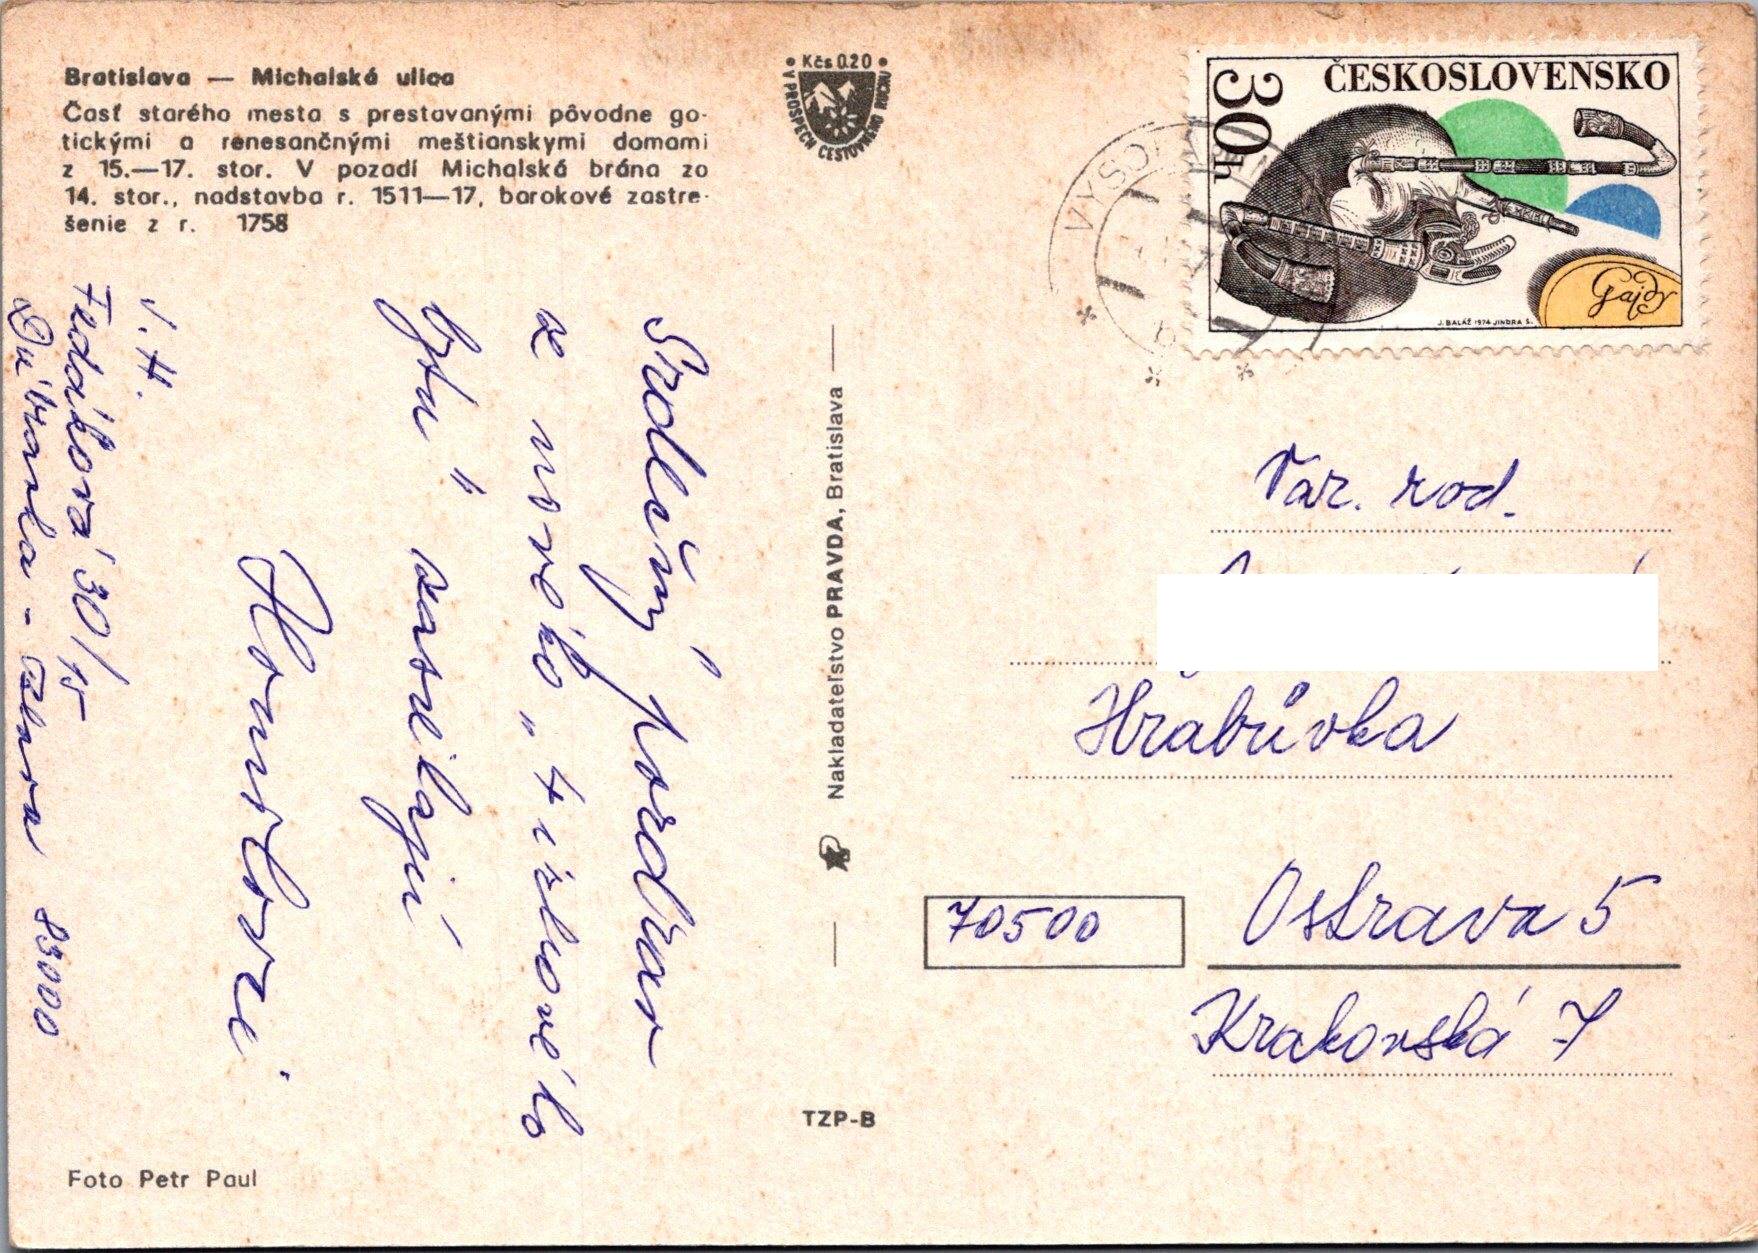 Bratislava — Michalská ulica
Časť starého mesta s prestavanými pôvodne go-
tickými a renesančnými meštianskymi domami
z 15.—17. stor. V pozadí Michalská brána zo
14. stor., nadstavba r. 1511—17, barokové zastre-
šenie z r. 1758
• Kčs 0.20 •
V PROSPECH CESTOVNÉHO RUCHU
ČESKOSLOVENSKO
30h
Gajdy
J. BALÁŽ 1974 JINDRA S.
Srdečný pozdrav
z nového „4 izbového
bytu" zasielajú
J. H.
Fedákova 30/15
Dúbravka - 83000
Nakladateľstvo PRAVDA, Bratislava
Važ. rod.
Hrabůvka
70500
Ostrava 5
Krakovská 7
TZP-B
Foto Petr Paul